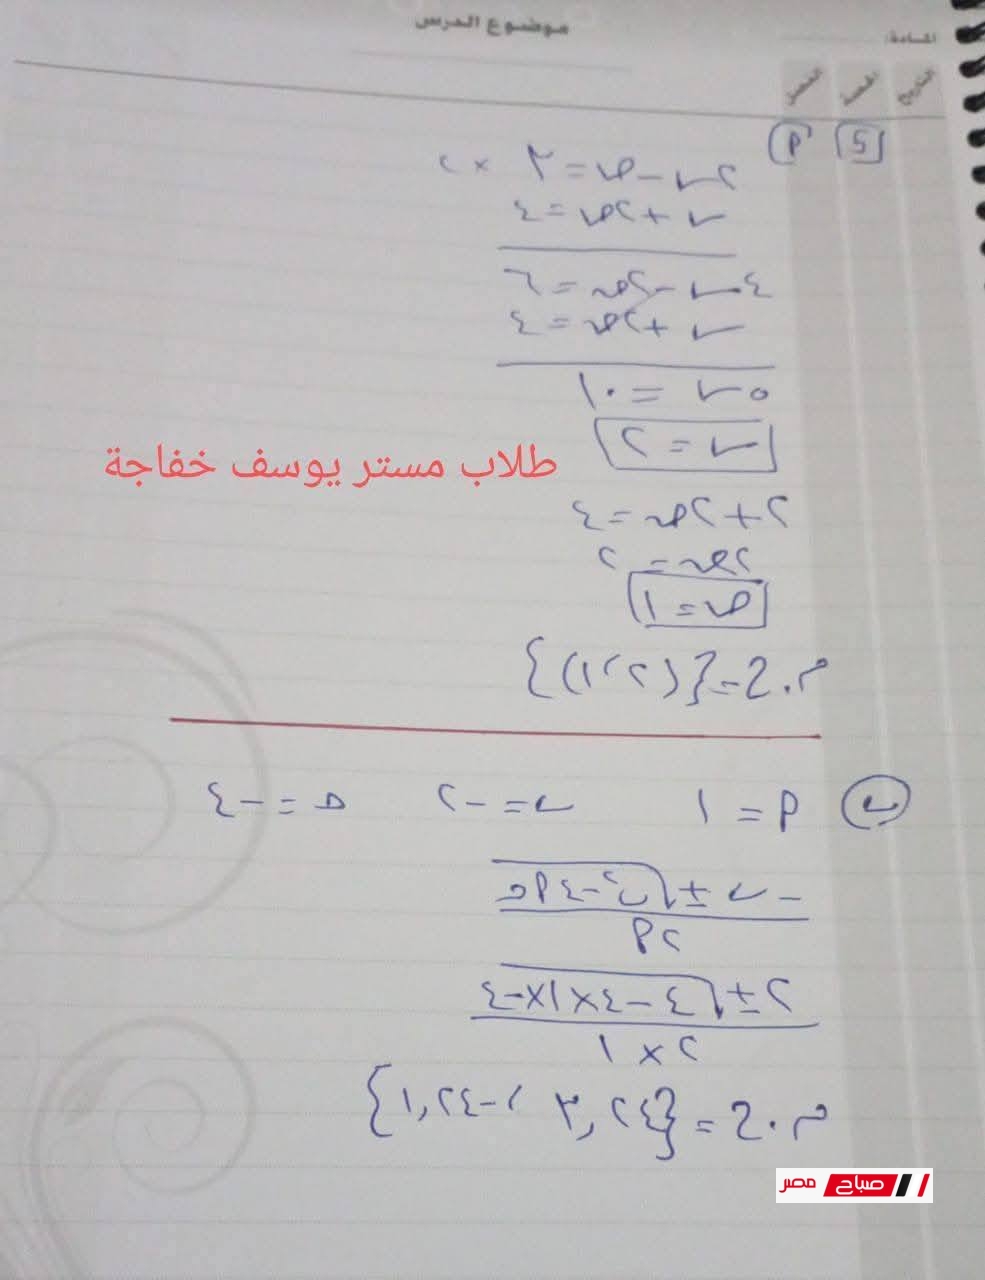 موضوع الدرس
المادة:
التاريخ الحصة الفصل
٢ أ
٢س - ص = ٣ × ٢
س + ٢ص = ٤
٤س - ٢ص = ٦
س + ٢ص = ٤
٥س = ١٠
س = ٢
٢ + ٢ص = ٤
٢ص = ٢
ص = ١
م.ح = {(٢، ١)}
طلاب مستر يوسف خفاجة
ب أ = ١ ب = -٢ جـ = -٤
-ب ± √(ب² - ٤أجـ)
٢أ
٢ ± √(٤ - ٤×١×-٤)
٢ × ١
م.ح = {٣,٢٤ ، -١,٢٤}
صباح مصر